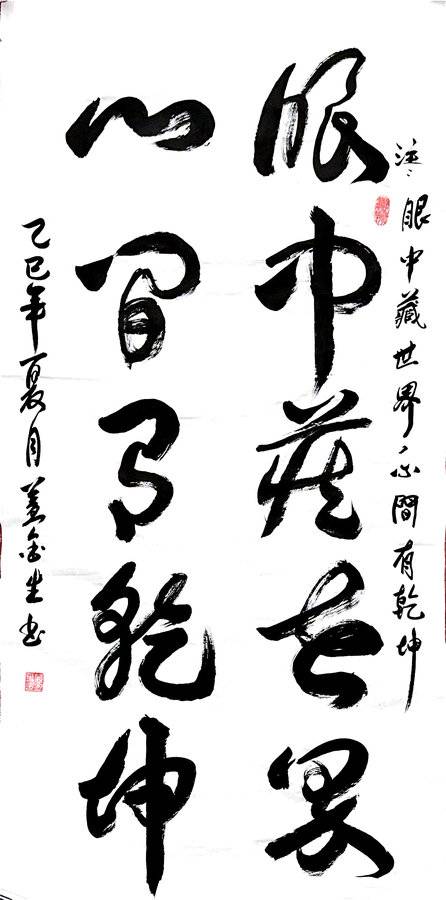 注：眼中藏世界心間有乾坤
眼中藏世界
心間有乾坤
乙巳年夏月姜金生书